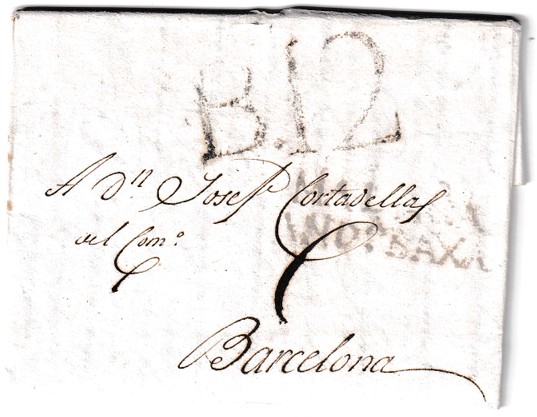 B.12
A Dⁿ Joseph Cortadellas
del Com.º
BAXA
Barcelona